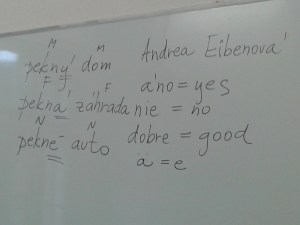 M M
pekný dom Andrea Eibenová
F F áno = yes
pekná záhrada nie = no
N N
pekné auto dobre = good
a = e